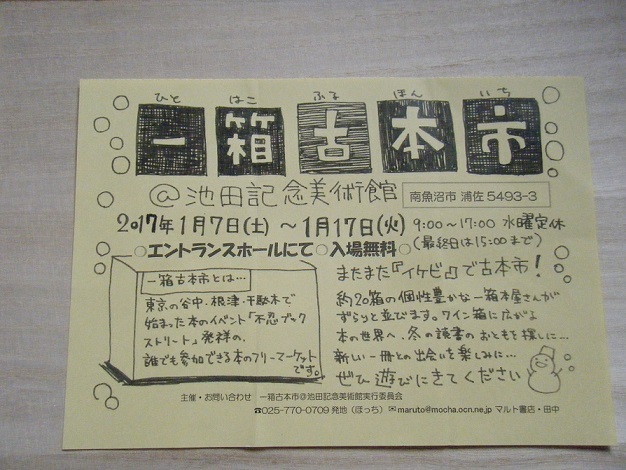 ひと はこ ふる ほん いち
一箱古本市
@池田記念美術館 南魚沼市 浦佐 5493-3
2017年1月7日(土) ~1月17日(火) 9:00~17:00 水曜定休
○エントランスホールにて○入場無料○ (最終日は15:00まで)
またまた『イケビ』で古本市!
一箱古本市とは…
東京の谷中・根津・千駄木で
始まった本のイベント「不忍ブック
ストリート」発祥の、
誰でも参加できる本のフリーマーケット
です。
約20箱の個性豊かな一箱本屋さんが
ずらりと並びます。ワイン箱に広がる
本の世界へ、冬の読書のおともを探しに…
新しい一冊との出会いを楽しみに…
ぜひ遊びにきてください
主催・お問い合わせ 一箱古本市@池田記念美術館実行委員会
☎025-770-0709 発地(ほっち) ✉maruto@mocha.ocn.ne.jp マルト書店・田中